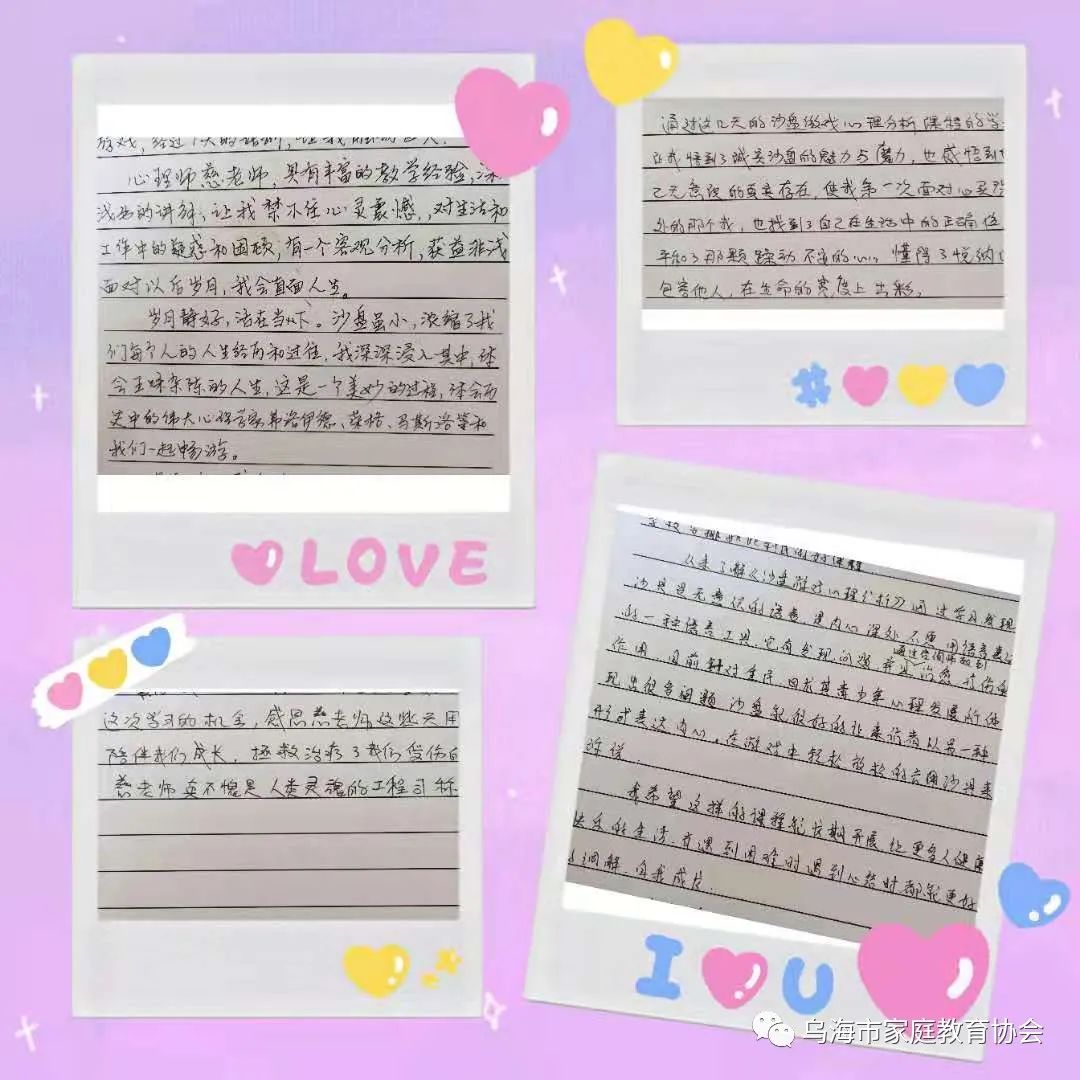 心理师慈老师，具有丰富的教学经验，深
浅出的讲解，让我禁不住心灵震憾，对生活和
工作中的疑惑和困顿，有一个客观分析，获益非浅
面对以后岁月，我会直面人生。
岁月静好，活在当下。沙盘虽小，浓缩了我
们每个人的人生经历和过往，我深深浸入其中，体
会五味杂陈的人生，这是一个美妙的过程，体会历
史中的伟大心理学家弗洛伊德、荣格、马斯洛等和
我们一起畅游。
LOVE
通过这几天的沙盘游戏心理分析课程的学
让我悟到了城堡沙盘的魅力与魔力，也感悟到
己无意识的真实存在，使我第一次面对心灵深
处的那个我，也找到了自己在生活中的正确位
平和了那颗躁动不安的心，懂得了悦纳
包容他人，在生命的宽度上出彩。
这次学习的机会，感恩慈老师这些天用
陪伴我们成长，拯救治疗了我们受伤的
慈老师真不愧是人类灵魂的工程司称
从来了解《沙盘游戏心理分析》通过学习发现
沙具是无意识的语意，是内心深处不要用语言表达
的一种语言工具，它有发现问题，并且治愈
通过空间
作用，目前针对 尤其青少年心理发展所体
现出很多问题，沙盘能很好的让来访者以另一种
形式表达内心，在游戏中轻松放松的应用沙具来
诉说。
我希望这样的课程能长期开展，让更多人健康
快乐的生活，在遇到困难时遇到心结时都能更好
调解，自我成长。
I U
乌海市家庭教育协会